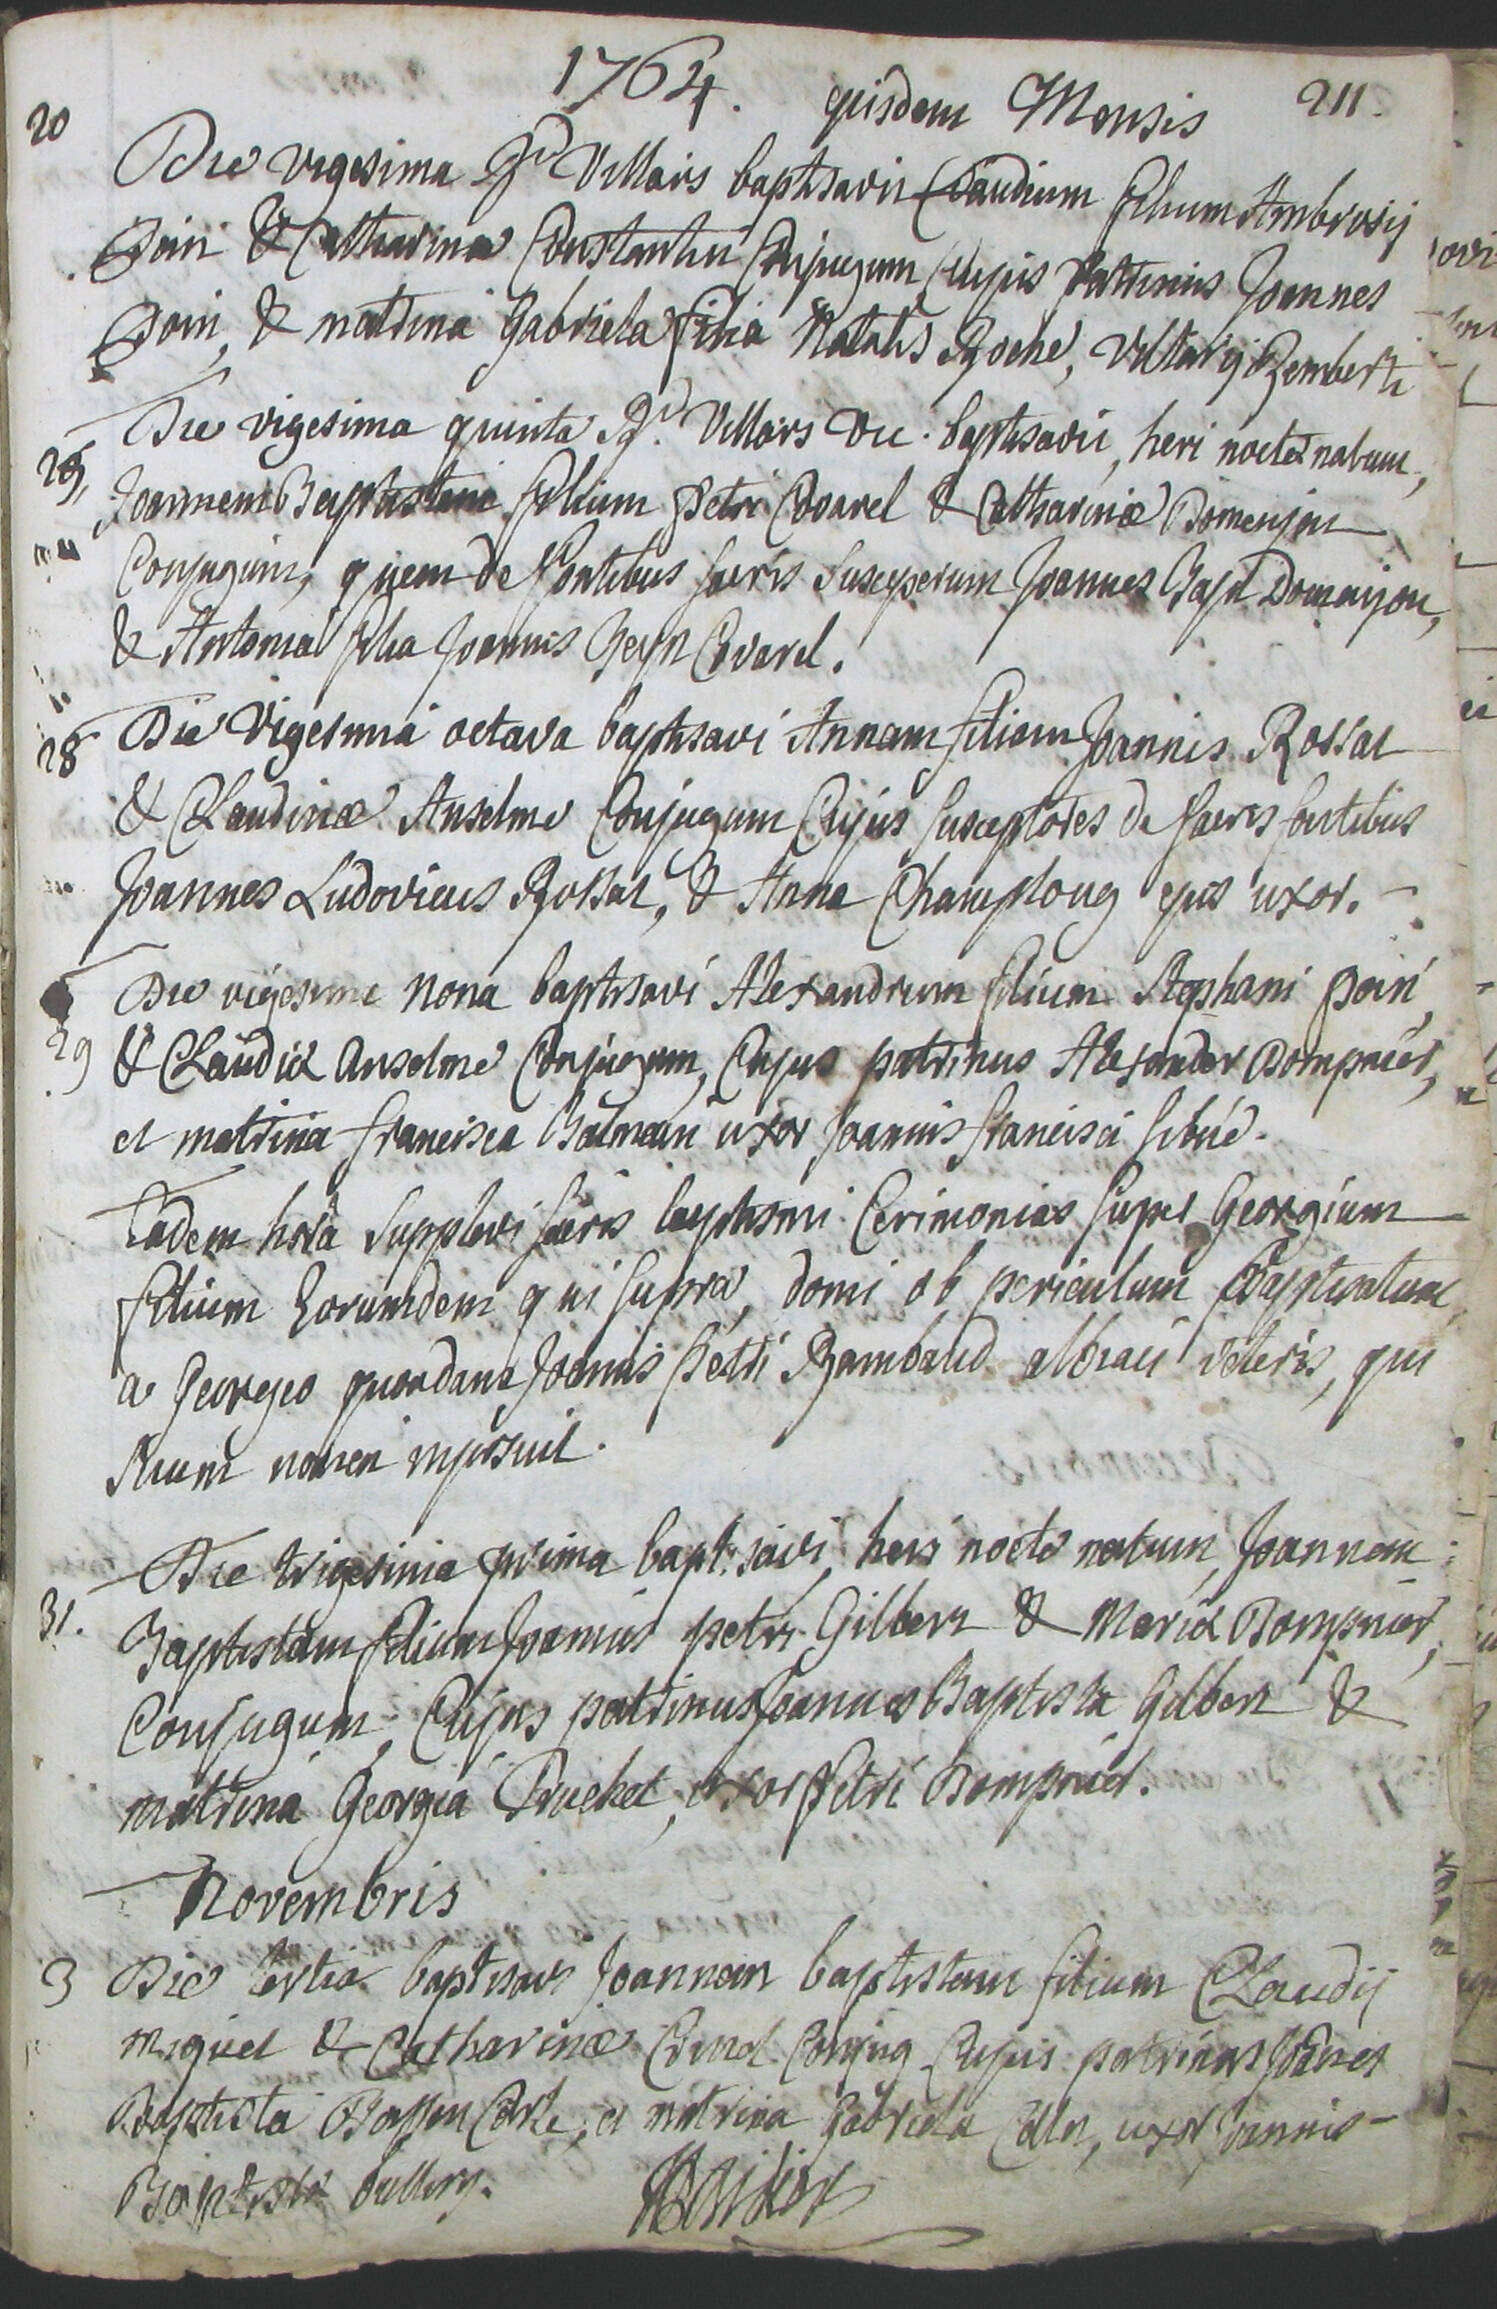 1764. ejusdem Mensis 211.
20
Die vigesima Rd Villars baptisavit Claudium filium Ambrosij
Poin & Catharinæ Constantin Conjugum Cujus Patrinus Joannes
Poin, & matrina Gabriela filia Natalis Roche, Villarij Gemberti
25,
Die vigesima quinta Rd. Villars Vic. baptisavit, heri nocte natum,
Joannem Baptistam filium Petri Covarel & Catharinæ Domenjon
Conjugum, quem de Fontibus sacris susceperunt Joannes Bapt Domenjon,
& Antonia filia Joannis Bapt Covarel.
28
Die Vigesima octava baptisavi Annam filiam Joannis Rossat
& Claudinæ Anselme Conjugum Cujus susceptores de sacris fontibus
Joannes Ludovicus Rossat, & Anna Champlong ejus uxor.
29
Die vigesima nona baptisavi Alexandrum filium Stephani Poin,
& Claudiæ Anselme Conjugum, Cujus patrinus Alexander Dompnier,
et matrina Francisca Balmain uxor Joannis Francisci Sibué.
Eadem hora Supplevi sacris baptismi Cerimonias super Georgium
filium Eorumdem qui supra, domi ob periculum Baptisatum
a Georgio quondam Joannis Petri Rambaud albiaci veteris, qui
suum nomen imposuit.
31.
Die trigesima prima baptisavi, heri nocte natum, Joannem
Baptistam filium Joannis petri Gilbert & Mariæ Dompnier,
Conjugum, Cujus patrinus Joannes Baptista Gilbert &
matrina Georgia Truchet, uxor Petri Dompnier.
Novembris
3
Die tertia baptisavi Joannem baptistam filium Claudij
Miquet & Catharinæ Conjug Cujus patrinus Joannes
Baptista et matrina Gabriela uxor Joannis
Baptistæ